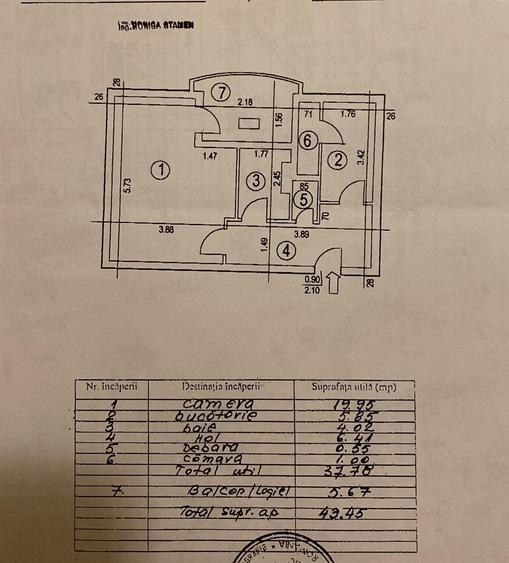 ing. MONICA STAMEN
28
26
7
2.18
1.56
71
1.76
26
6
1.47
1.77
2
3.42
1
5.73
3
2.45
85
5
70
3.88
3.89
4
1.49
0.90
2.10
28
Nr. încăperii Destinaţia încăperii Suprafaţa utilă (mp)
1 camera 19.95
2 bucătorie 5.85
3 baie 4.02
4 Hol 6.41
5 Debara 0.55
6 Cămara 1.00
Total util 37.78
7. Balcon/Logiei 5.67
Total supr. ap 43.45
ROMÂNIA